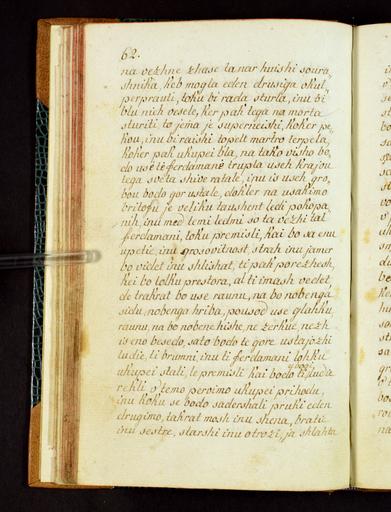 62.
na vezhne zhase ta nar huishi soura,
shnika, keb mogla eden drusiga okul,
perprauti, toku bi rada sturla, inu bi
blu nich vesele, ker pak tega na morta
sturiti, to jema je superneishi, koker pe,
kou, inu bi raishi topelt martro terpela,
koker pak ukupei bla, na tako visho bo,
do use te ferdamane trupla useh krajou
tega sveta shive ratale, inu is useh gro,
bou bodo gor ustale, dokler na usakimo
britofu je veliku taushent ledi pokopa,
nih, inu med temi ledmi so ta vezhi tal
ferdamani, toku premisli, kai bo sa enu
upetie, inu grosovitnost, strah inu jamer
bo videt inu shlishat, ti pak porezhesh,
kei bo tolku prestora, al ti imash vedet,
de takrat bo use raunu, na bo nobenga
sidu, nobenga hriba, pousod use glahku,
raunu, na bo nobene hishe, ne zerkue, nezh
is eno besedo, sato bodo te gore ustajozhi
ludie, ti brumni, inu ti ferdamani lohku
ukupei stali, le premisli kai bodo ti ludie
rekli o temo pervimo ukupei prihodu,
inu koku se bodo sadershali pruki eden
drugimo, takrat mosh inu shena, bratie
inu sestre, starshi inu otrozi, ja shlahta